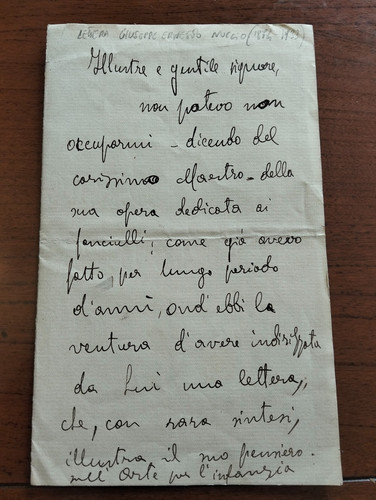 LETTERA GIUSEPPE ERNESTO NUCCIO (1874 1933)
Illustre e gentile signore,
non potevo non
occuparmi - dicendo del
carissimo Maestro - della
sua opera dedicata ai
fanciulli; come già avevo
fatto, per lungo periodo
d'anni, ond'ebbi la
ventura d'avere indirizzata
da Lui una lettera,
che, con rara sintesi,
illustra il suo pensiero
sull'Arte per l'infanzia